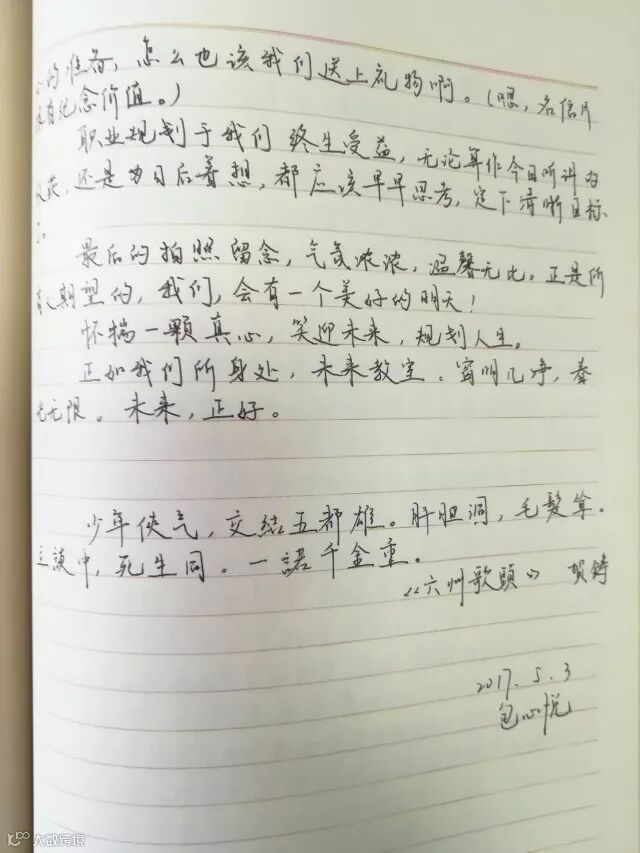 的准备,怎么也该我们送上礼物啊。(嗯,名信片
有纪念价值。)
职业规划于我们终生受益,无论单作今日听讲的
获,还是为日后着想,都应该早早思考,定下清晰目标
最后的拍照留念,气氛浓浓,温馨无比。正是所
有人期望的,我们,会有一个美好的明天!
怀揣一颗真心,笑迎未来,规划人生。
正如我们所身处,未来教室。窗明几净,春
光无限。未来,正好。
少年侠气,交结五都雄。肝胆洞,毛髮耸。
立談中,死生同。一諾千金重。
《六州歌頭》 贺铸
2017.5.3
包心悦
大数跨境